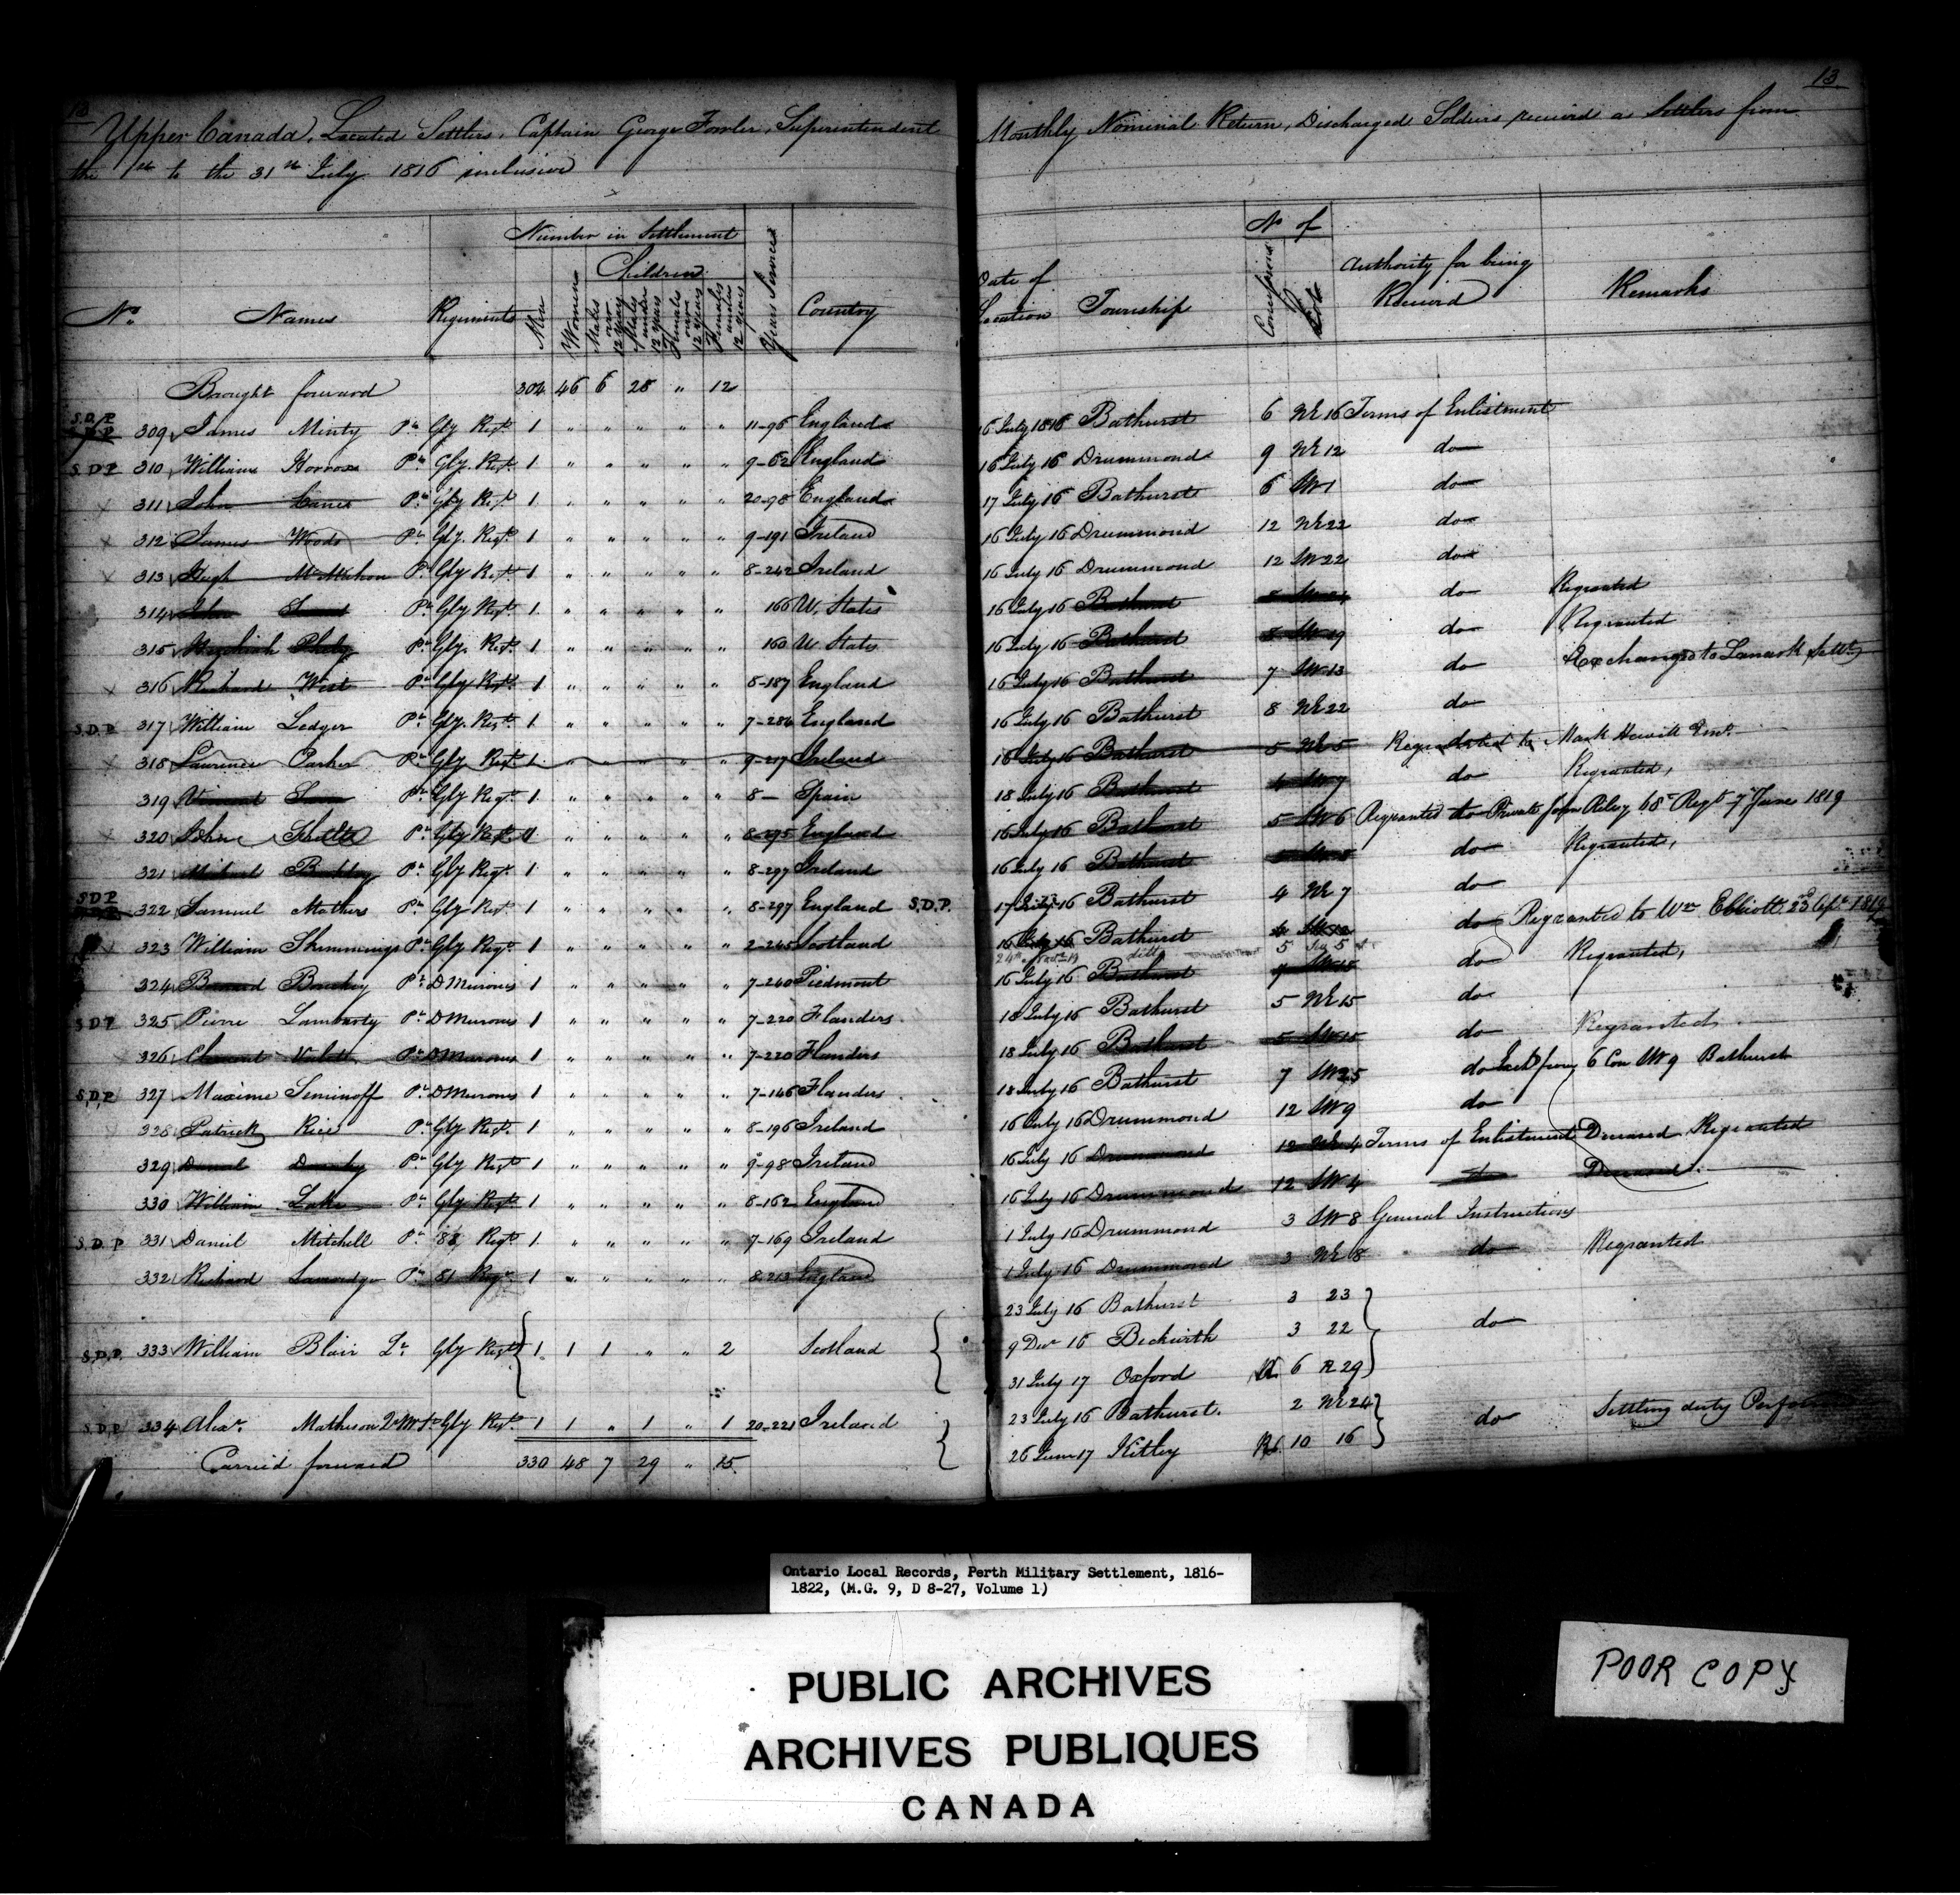 13
Upper Canada, Located Settlers, Captain George Fowler, Superintendent
the 1st to the 31st July 1816 inclusive
13
Monthly Nominal Return, Discharged Soldiers received as Settlers from
Number in Settlement
Children
No. Names Regiments Men Women Males over 12 years Males under 12 years Females over 12 years Females under 12 years Years Services Country
No of
Date of Location Township Concessions Lots Authority for being Received Remarks
Brought forward 304 46 6 28 " 12
S.D.P. 309 James Minty Pte Gly Regt. 1 " " " " " 11-96 England 16 July 1816 Bathurst 6 NE 16 Terms of Enlistment
S.D.P. 310 William Pte Gly. Regt. 1 " " " " " 9-62 England 16 July 16 Drummond 9 NE 12 do
311 John Pte Gly Regt 1 " " " " " 20-98 England 17 July 16 Bathurst 6 SW 1 do
312 James Woods Pte Gly. Regt. 1 " " " " " 9-191 Ireland 16 July 16 Drummond 12 NE 22 do
313 Hugh McMahon Pte Gly Regt. 1 " " " " " 8-242 Ireland 16 July 16 Drummond 12 SW 22 do
314 Pte Gly Regt 1 " " " " " 166 U. States 16 July 16 Bathurst do Regranted
315 Pte Gly. Regt. 1 " " " " " 160 U States 16 July 16 Bathurst 8 SW 19 do Regranted
316 Richard West Pte Gly Regt. 1 " " " " " 8-187 England 16 July 16 Bathurst 7 SW 13 do Exchanged to Lanark Settt
S.D.P. 317 William Ledger Pte Gly. Regt. 1 " " " " " 7-284 England 16 July 16 Bathurst 8 NE 22 do
318 Laurence Parker Pte Gly Regt 1 " " " " " 9-217 Ireland 16 July 16 Bathurst 5 NE 5 Regranted to Mark Hewitt Emt.
319 Pte Gly Regt. 1 " " " " " 8- Spain 18 July 16 Bathurst 4 SW 7 do Regranted,
320 John Pte Gly Regt. 1 " " " " " 8-195 England 16 July 16 Bathurst 5 SW 6 Regranted to Private John Riley 68t Regt 7 June 1819
321 Pte Gly Regt. 1 " " " " " 8-297 Ireland 16 July 16 Bathurst do Regranted,
S.D.P. 322 Samuel Mathers Pte Gly Regt. 1 " " " " " 8-297 England S.D.P. 17 July 16 Bathurst 4 NE 7 do
323 William Shimmings Pte Gly Regt. 1 " " " " " 2-245 Scotland 16 July 16 Bathurst do Regranted to Wm Elliott 23 1819
ditto 5 5
324 Pte D Murons 1 " " " " " 7-240 Piedmont 16 July 16 Bathurst do Regranted,
S.D.P. 325 Pierre Lambarty Pte D Murons 1 " " " " " 7-220 Flanders 18 July 16 Bathurst 5 NE 15 do
326 Clement Pte D Murons 1 " " " " " 7-220 Flanders 18 July 16 Bathurst 5 SW 15 do Regranted
S.D.P. 327 Maxime Siminoff Pte D Murons 1 " " " " " 7-146 Flanders 18 July 16 Bathurst 7 SW 25 do Exd from 6 Con SW 9 Bathurst
328 Patrick Rice Pte Gly Regt. 1 " " " " " 8-196 Ireland 16 July 16 Drummond 12 SW 9 do
329 Pte Gly Regt 1 " " " " " 9-98 Ireland 16 July 16 Drummond 12 NE 4 Terms of Enlistment Deceased Regranted
330 William Lake Pte Gly Regt. 1 " " " " " 8-162 England 16 July 16 Drummond 12 SW 4 do Deceased
S.D.P. 331 Daniel Mitchell Pte Regt. 1 " " " " " 7-169 Ireland 1 July 16 Drummond 3 SW 8 General Instructions
332 Richard Pte 81 Regt. 1 " " " " " 8-213 England 1 July 16 Drummond 3 NE 8 do Regranted
23 July 16 Bathurst 3 23
S.D.P. 333 William Blair Lt Gly Regt. 1 1 1 " " 2 Scotland 9 Decr 16 Beckwith 3 22 do
31 July 17 Oxford 6 R 29
S.D.P. 334 Alexr. Matheson QrMr Gly Regt. 1 1 " 1 " 1 20-221 Ireland 23 July 16 Bathurst. 2 NE 24 do Settling duty
26 June 17 Kitley 10 16
Carried forward 330 48 7 29 " 15
Ontario Local Records, Perth Military Settlement, 1816-
1822, (M.G. 9, D 8-27, Volume 1)
PUBLIC ARCHIVES
ARCHIVES PUBLIQUES
CANADA
POOR COPY